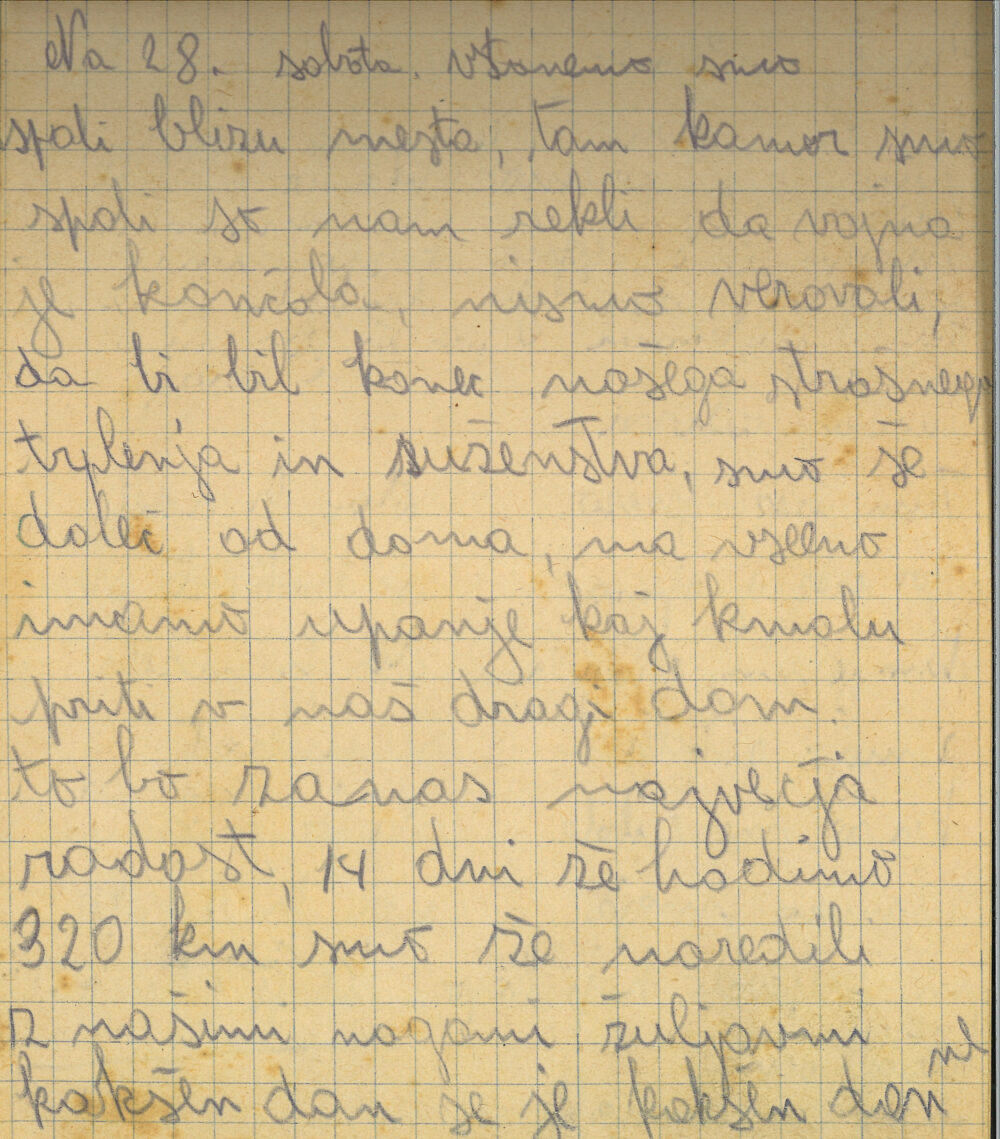 Na 28. sobota. vstanemo smo
spali blizu mesta, tam kamor smo
spali so nam rekli da vojna
je končala, nismo verovali,
da bi bil konec našega strašnega
trplenja in suženstva, smo še
daleč od doma, ma vseeno
imamo upanje kaj kmalu
priti v naš dragi dom.
to bo za nas največja
radost, 14 dni že hodimo
320 km smo že naredili
z našimi nogami žuljavmi
kakšen dan se je kakšen dan ne